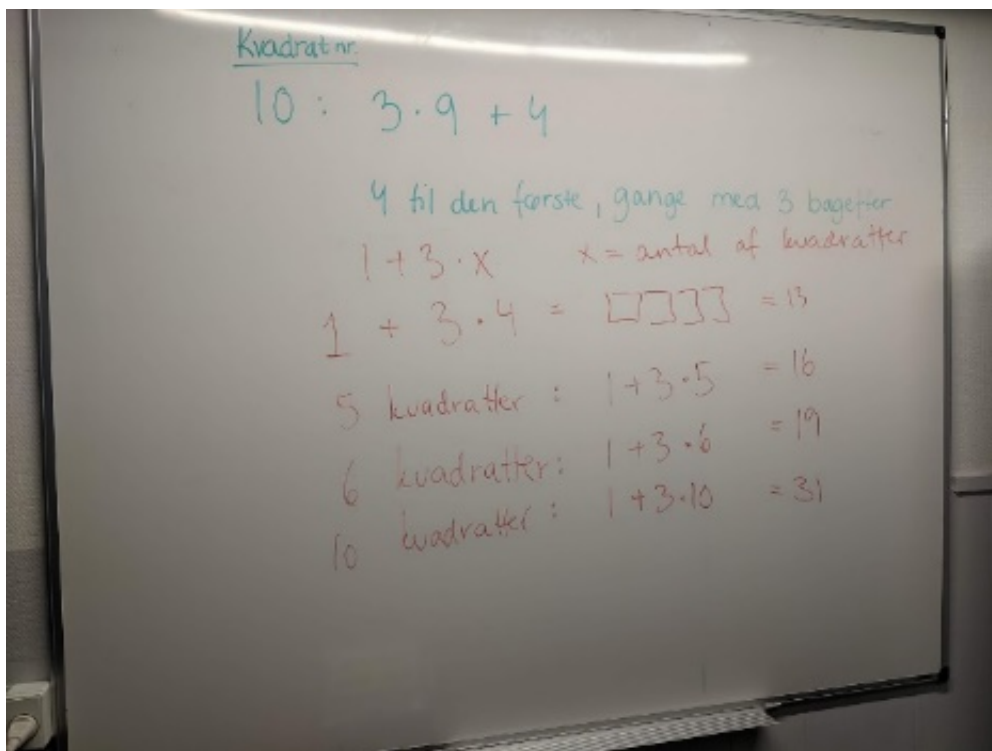 Kvadrat nr.
10 : 3 · 9 + 4
4 til den første, gange med 3 bagefter
1 + 3 · x x = antal af kvadratter
1 + 3 · 4 = = 13
5 kvadratter : 1 + 3 · 5 = 16
6 kvadratter : 1 + 3 · 6 = 19
10 kvadratter : 1 + 3 · 10 = 31